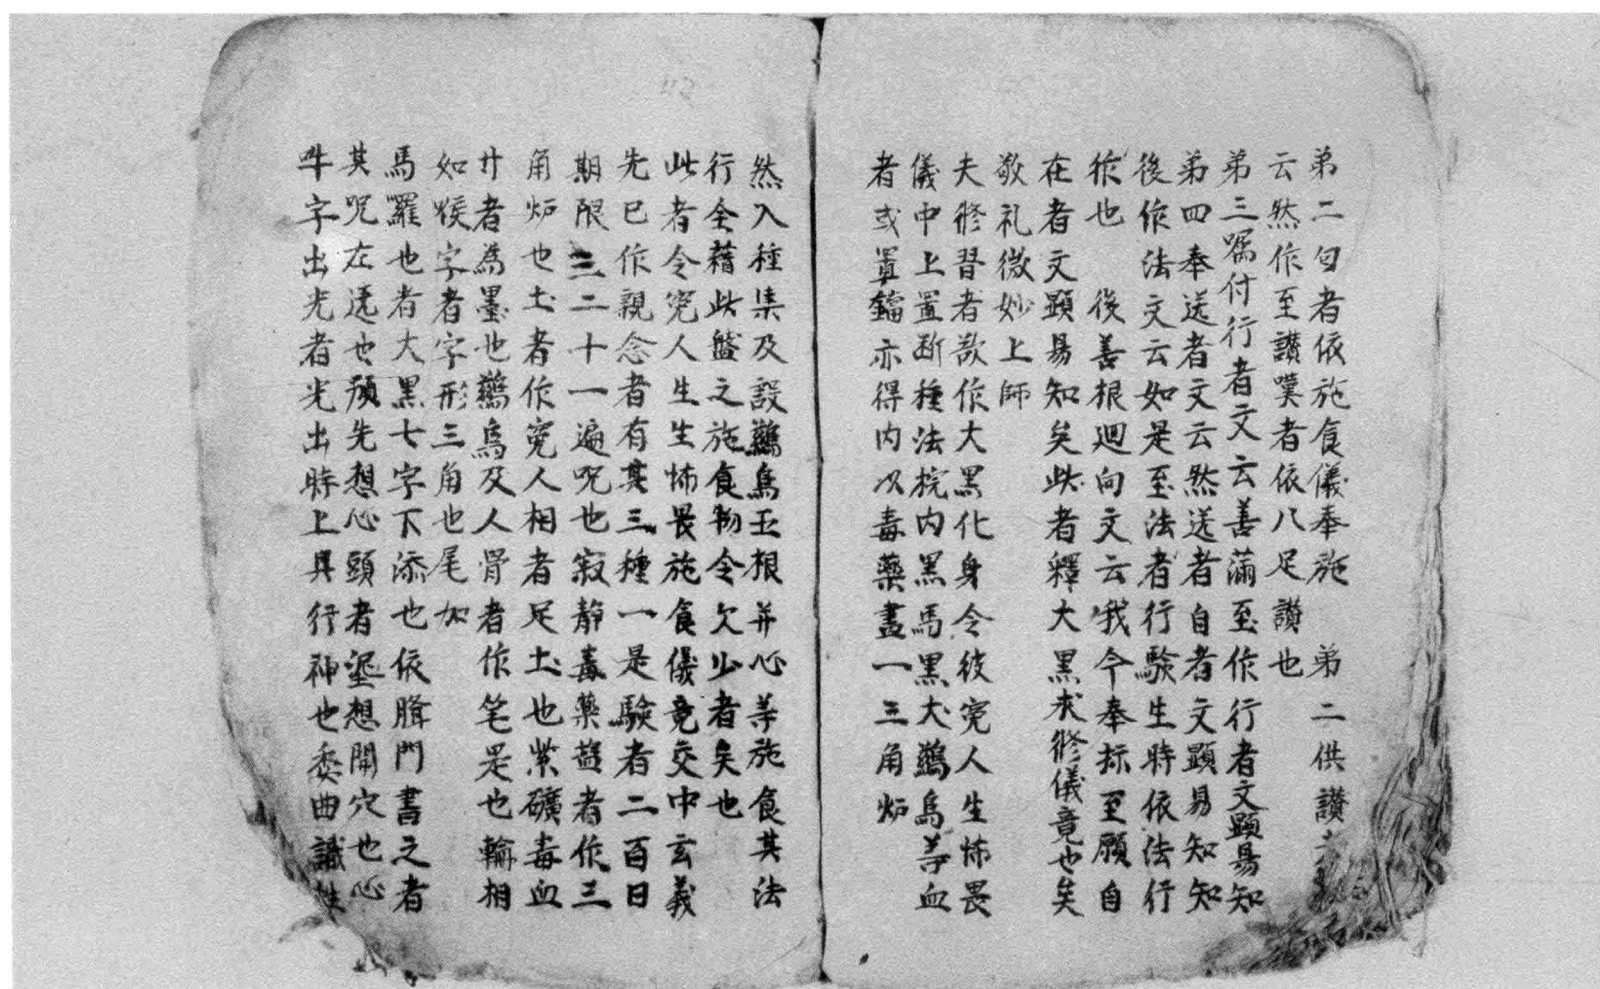 弟二句者依施食儀奉施　弟二供讃
云然作至讃嘆者依八足讃也
弟三嘱付行者文云善滿至作行者文顕易知
弟四奉送者文云然送者自者文顕易知知
後作法文云如是至法者行驗生時依法行
作也　後善根廻向文云我今奉捺至願自
在者文顕易知矣此者釋大黑求修儀竟也矣
敬礼微妙上師
夫修習者欲作大黑化身令彼寃人生怖畏
儀中上置斷種法梡内黑馬黑犬鷄烏等血
者或置鐺亦得内以毒藥畫一三角炉
然入種集及設鷄烏玉根并心等施食其法
行全藉此盛之施食物令欠少者矣也
此者令寃人生生怖畏施食儀竟交中玄義
先已作親念者有其三種一是驗者二百日
期限三二十一遍呪也寂静毒藥盐者作三
角炉也土者作寃人相者足土也紫礦毒血
廾者為墨也鷄烏及人骨者作笔是也輪相
如㷋字者字形三角也尾加
馬羅也者大黑七字下添也依脽門書之者
其呪左遶也頦先想心頭者埿想開穴也心
吽字出光者光出時上具行神也委曲識